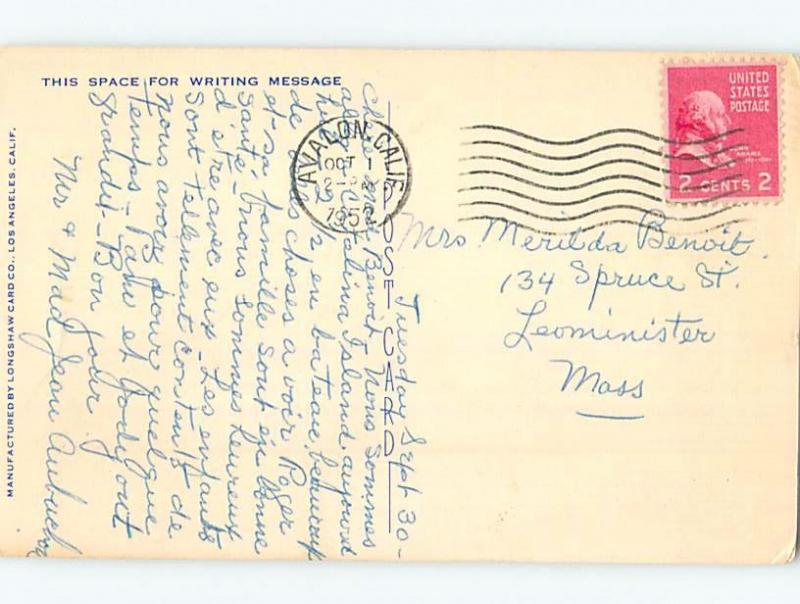 THIS SPACE FOR WRITING MESSAGE
Tuesday Sept 30 -
Chère Mad Benoit. Nous sommes
allez à Catalina Island aujourd
hui 2 hrs en bateau, beaucoup
de belles choses a voir Roger
et sa famille sont en bonne
santé. nous sommes heureux
d'être avec eux - Les enfants
sont tellement contents de
nous avoir pour quelque
temps - Pam et Jody ont
grandit - Bon jour
Mr & Mad Jean Aubuchon
POST CARD
MANUFACTURED BY LONGSHAW CARD CO., LOS ANGELES, CALIF.
AVALON, CALIF.
OCT 1
2 - PM
1952
UNITED
STATES
POSTAGE
JOHN
ADAMS
2 CENTS 2
Mrs Merilda Benoit.
134 Spruce St.
Leominister
Mass